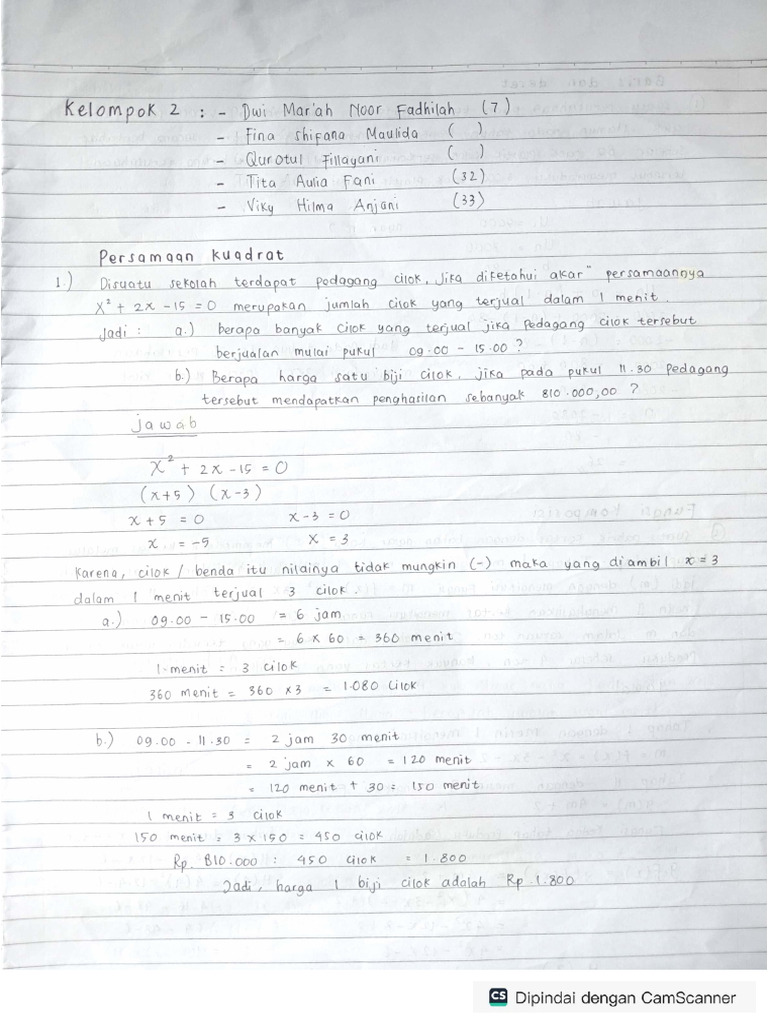 Kelompok 2 : - Dwi Mar'ah Noor Fadhilah (7)
- Fina Shifana Maulida ( )
- Qurotul Fillayani ( )
- Tita Aulia Fani (32)
- Viky Hilma Anjani (33)
Persamaan Kuadrat
1.) Disuatu sekolah terdapat pedagang cilok, Jika diketahui akar" persamaannya
x² + 2x - 15 = 0 merupakan jumlah cilok yang terjual dalam 1 menit.
Jadi : a.) berapa banyak cilok yang terjual jika Pedagang cilok tersebut
berjualan mulai pukul 09.00 - 15.00 ?
b.) Berapa harga satu biji cilok, jika pada pukul 11.30 Pedagang
tersebut mendapatkan penghasilan sebanyak 810.000,00 ?
jawab
x² + 2x - 15 = 0
(x+5) (x-3)
x + 5 = 0 x - 3 = 0
x = -5 x = 3
Karena, cilok / benda itu nilainya tidak mungkin (-) maka yang diambil x = 3
dalam 1 menit terjual 3 cilok
a.) 09.00 - 15.00 = 6 jam
= 6 x 60 = 360 menit
1 menit = 3 cilok
360 menit = 360 x 3 = 1.080 cilok
b.) 09.00 - 11.30 = 2 jam 30 menit
= 2 jam x 60 = 120 menit
= 120 menit + 30 = 150 menit
1 menit = 3 cilok
150 menit = 3 x 150 = 450 cilok
Rp. 810.000 : 450 cilok = 1.800
Jadi, harga 1 biji cilok adalah Rp 1.800
CS Dipindai dengan CamScanner